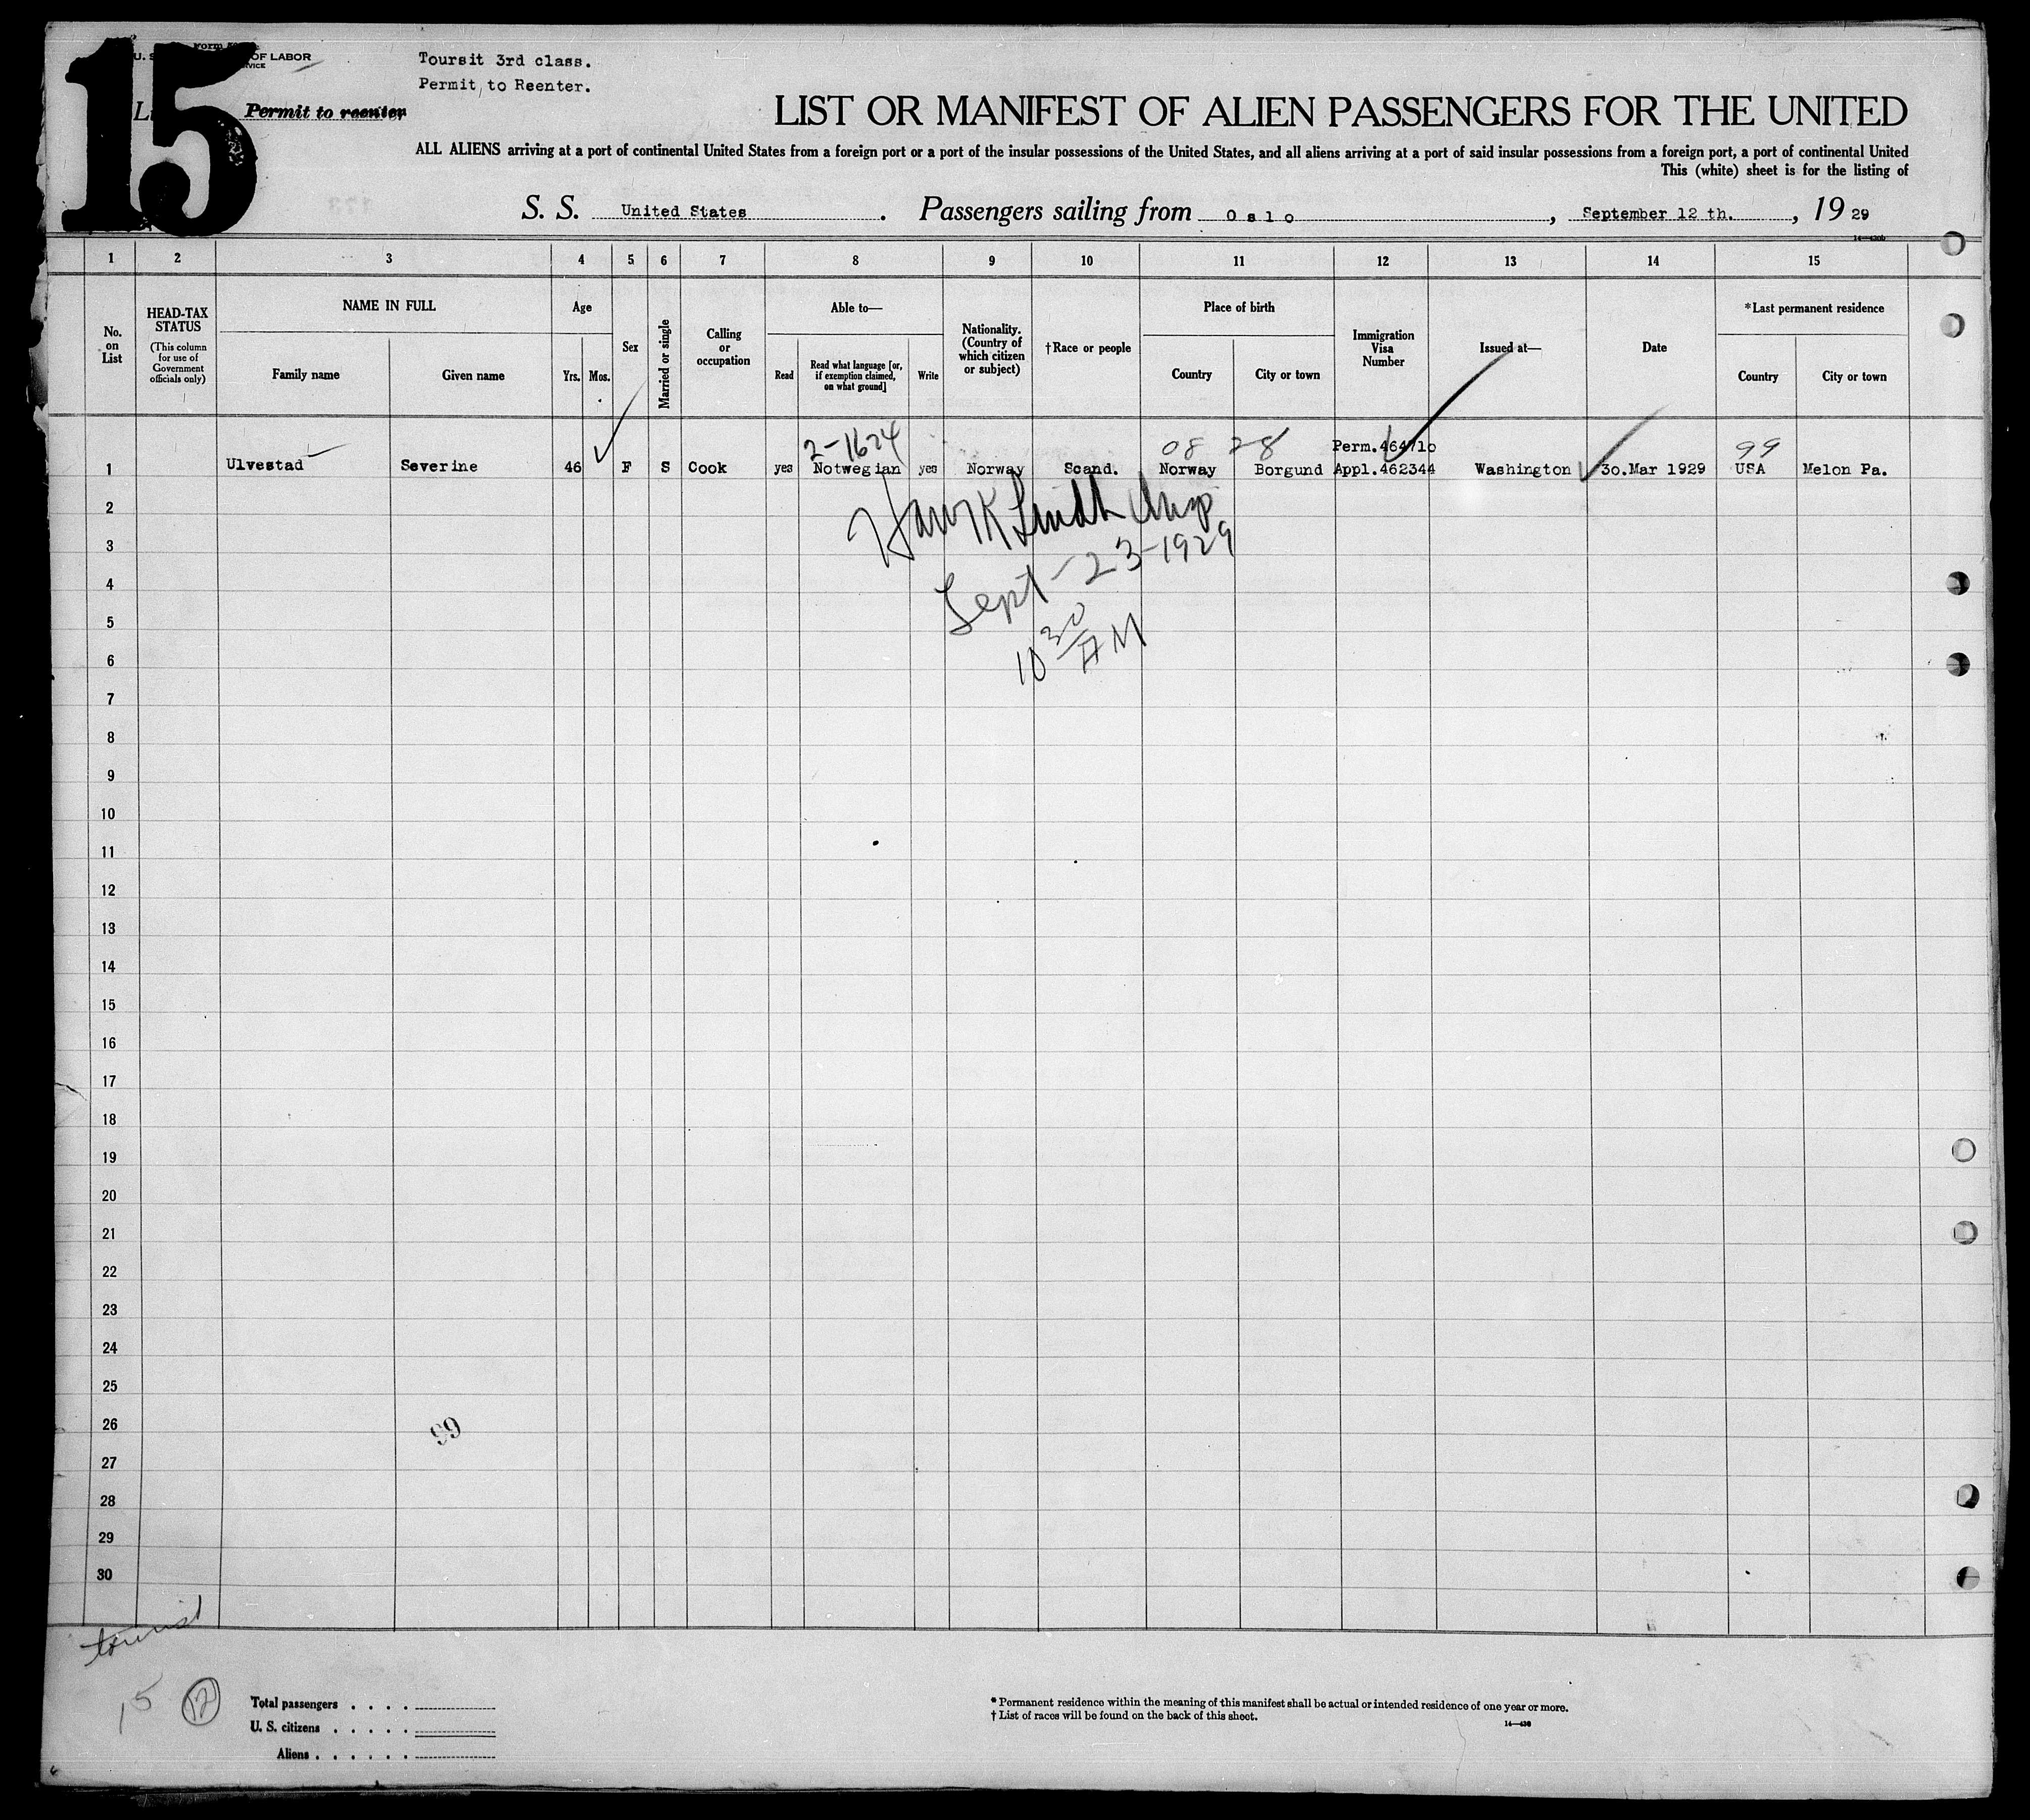 15
OF LABOR
Toursit 3rd class.
Permit to Reenter.
Permit to reenter
LIST OR MANIFEST OF ALIEN PASSENGERS FOR THE UNITED
ALL ALIENS arriving at a port of continental United States from a foreign port or a port of the insular possessions of the United States, and all aliens arriving at a port of said insular possessions from a foreign port, a port of continental United
This (white) sheet is for the listing of
S. S. United States . Passengers sailing from Oslo , September 12 th. , 19 29
1 2 3 4 5 6 7 8 9 10 11 12 13 14 15
No. on List
HEAD-TAX STATUS
(This column for use of Government officials only)
NAME IN FULL
Family name
Given name
Age
Yrs. Mos.
Sex
Married or single
Calling or occupation
Able to—
Read
Read what language [or, if exemption claimed, on what ground]
Write
Nationality. (Country of which citizen or subject)
†Race or people
Place of birth
Country
City or town
Immigration Visa Number
Issued at—
Date
*Last permanent residence
Country
City or town
2-1624 08 28 Perm.464710 99
1 Ulvestad Severine 46 F S Cook yes Notwegian yes Norway Scand. Norway Borgund Appl.462344 Washington 30.Mar 1929 USA Melon Pa.
2
3
Sept-23-1929
4
5
10 30 AM
6
7
8
9
10
11
12
13
14
15
16
17
18
19
20
21
22
23
24
25
26
99
27
28
29
30
tourist
15 12
Total passengers . . . .
U. S. citizens . . . . .
Aliens . . . . . .
* Permanent residence within the meaning of this manifest shall be actual or intended residence of one year or more.
† List of races will be found on the back of this sheet.
14—430